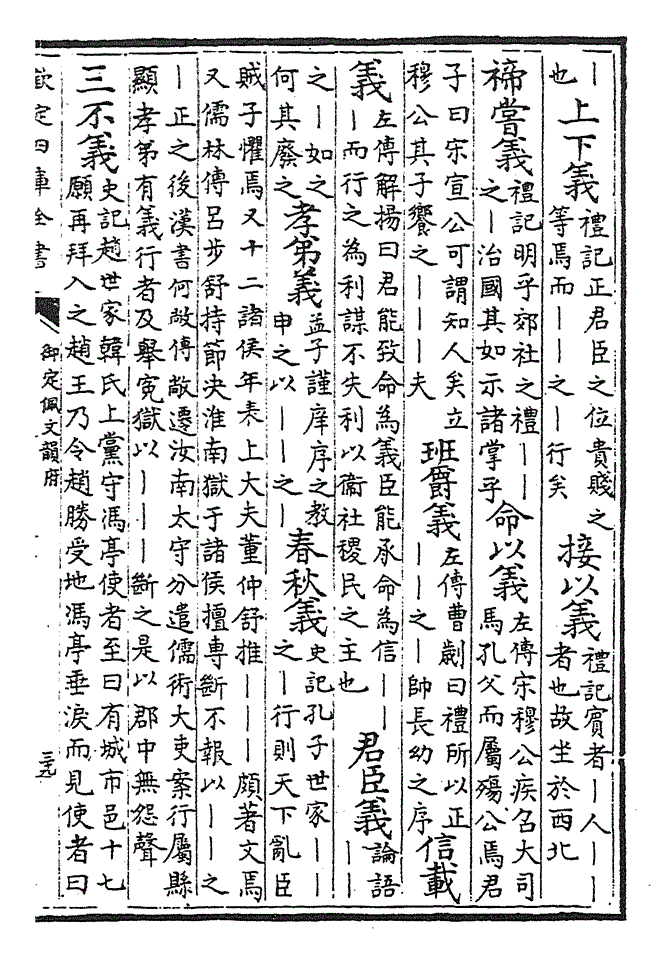 丨也上下義禮記正君臣之位貴賤之等焉而丨丨之丨行矣接以義禮記賓者丨人丨丨者也故坐於西北
禘嘗義禮記明乎郊社之禮丨丨之丨治國其如示諸掌乎命以義左傳宋穆公疾召大司馬孔父而屬殤公焉君
子曰宋宣公可謂知人矣立穆公其子饗之丨丨丨夫班爵義左傳曹劌曰禮所以正丨丨之丨帥長幼之序信載
義左傳解揚曰君能致命為義臣能承命為信丨丨丨而行之為利謀不失利以衞社稷民之主也君臣義論語丨丨
之丨如之何其廢之孝弟義孟子謹庠序之教申之以丨丨之丨春秋義史記孔子世家丨丨之丨行則天下亂臣
賊子懼焉又十二諸侯年表上大夫董仲舒推丨丨丨頗著文焉又儒林傳呂步舒持節決淮南獄于諸侯擅專斷不報以丨丨之
丨正之後漢書何敞傳敞遷汝南太守分遣儒術大吏案行屬縣顯孝弟有義行者及舉寃獄以丨丨丨斷之是以郡中無怨聲
三不義史記趙世家韓氏上黨守馮亭使者至曰有城市邑十七願再拜入之趙王乃令趙勝受地馮亭垂淚而見使者曰
欽定四庫全書
御定佩文韻府